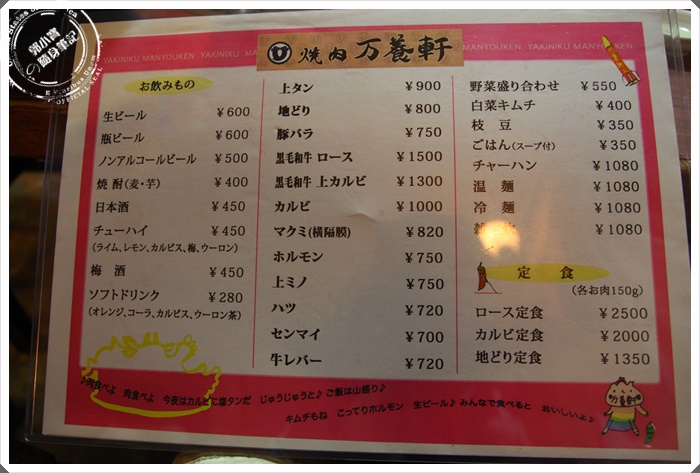 郭小寶の
隨身筆記
OFFICIAL SEAL
YAKINIKU MANYOUKEN YAKINIKU
MANYOUKEN YAKINIKU MANYOUKEN
焼肉 万養軒
お飲みもの
生ビール ¥600
瓶ビール ¥600
ノンアルコールビール ¥500
焼酎(麦・芋) ¥400
日本酒 ¥450
チューハイ ¥450
(ライム、レモン、カルピス、梅、ウーロン)
梅酒 ¥450
ソフトドリンク ¥280
(オレンジ、コーラ、カルピス、ウーロン茶)
上タン ¥900
地どり ¥800
豚バラ ¥750
黒毛和牛 ロース ¥1500
黒毛和牛 上カルビ ¥1300
カルビ ¥1000
マクミ(横隔膜) ¥820
ホルモン ¥750
上ミノ ¥750
ハツ ¥720
センマイ ¥700
牛レバー ¥720
野菜盛り合わせ ¥550
白菜キムチ ¥400
枝豆 ¥350
ごはん(スープ付) ¥350
チャーハン ¥1080
温麺 ¥1080
冷麺 ¥1080
¥1080
定食
(各お肉150g)
ロース定食 ¥2500
カルビ定食 ¥2000
地どり定食 ¥1350
♪肉食べよ 肉食べよ 今夜はカルビに塩タンだ じゅうじゅうと♪ ご飯は山盛り♪
キムチもね こってりホルモン 生ビール♪ みんなで食べると おいしいよ♪